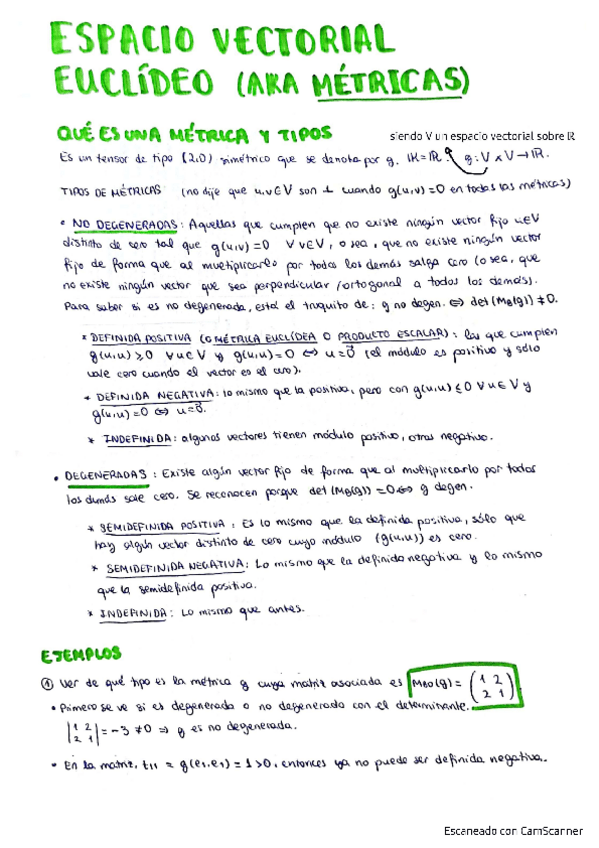 ESPACIO VECTORIAL
EUCLÍDEO (AKA MÉTRICAS)
QUÉ ES UNA MÉTRICA Y TIPOS
siendo V un espacio vectorial sobre R
Es un tensor de tipo (2,0) simétrico que se denota por g. IK=IR. g: V x V → IR.
TIPOS DE MÉTRICAS (no dije que u,v∈V son ⊥ cuando g(u,v)=0 en todas las métricas)
• NO DEGENERADAS: Aquellas que cumplen que no existe ningún vector fijo u∈V
distinto de cero tal que g(u,v)=0 ∀v∈V, o sea, que no existe ningún vector
fijo de forma que al multiplicarlo por todos los demás salga cero (o sea, que
no existe ningún vector que sea perpendicular/ortogonal a todos los demás).
Para saber si es no degenerada, está el truquito de: g no degen. ⇔ det(MB(g)) ≠ 0.
* DEFINIDA POSITIVA (o MÉTRICA EUCLÍDEA O PRODUCTO ESCALAR): las que cumplen
g(u,u) ⩾ 0 ∀u∈V y g(u,u)=0 ⇔ u=0⃗ (el módulo es positivo y sólo
vale cero cuando el vector es el cero).
* DEFINIDA NEGATIVA: lo mismo que la positiva, pero con g(u,u) ⩽ 0 ∀u∈V y
g(u,u)=0 ⇔ u=0⃗.
* INDEFINIDA: algunos vectores tienen módulo positivo, otros negativo.
• DEGENERADAS: Existe algún vector fijo de forma que al multiplicarlo por todos
los demás sale cero. Se reconocen porque det(MB(g))=0 ⇔ g degen.
* SEMIDEFINIDA POSITIVA: Es lo mismo que la definida positiva, sólo que
hay algún vector distinto de cero cuyo módulo (g(u,u)) es cero.
* SEMIDEFINIDA NEGATIVA: Lo mismo que la definida negativa y lo mismo
que la semidefinida positiva.
* INDEFINIDA: Lo mismo que antes.
EJEMPLOS
① Ver de qué tipo es la métrica g cuya matriz asociada es MB0(g) = (1 2 / 2 1).
• Primero se ve si es degenerada o no degenerada con el determinante.
|1 2 / 2 1| = -3 ≠ 0 ⇒ g es no degenerada.
• En la matriz, t11 = g(e1,e1) = 1 > 0, entonces ya no puede ser definida negativa.
Escaneado con CamScanner